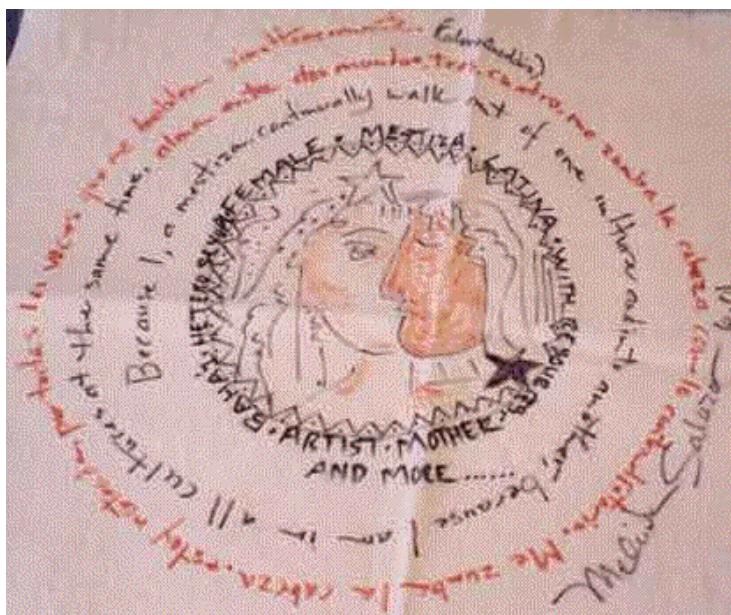 HETEROSEXUAL FEMALE · MESTIZA · LATINA · WITH
MOTHER · ARTIST · BAHAI
AND MORE ......
Because I, a mestiza, continually walk out of one culture and into another, because I am in all cultures at the same time,
alma entre dos mundos, tres, cuatro, me zumba la cabeza con lo contradictorio. Me zumba la cabeza. estoy norteada por todas las voces que me hablan simultáneamente.